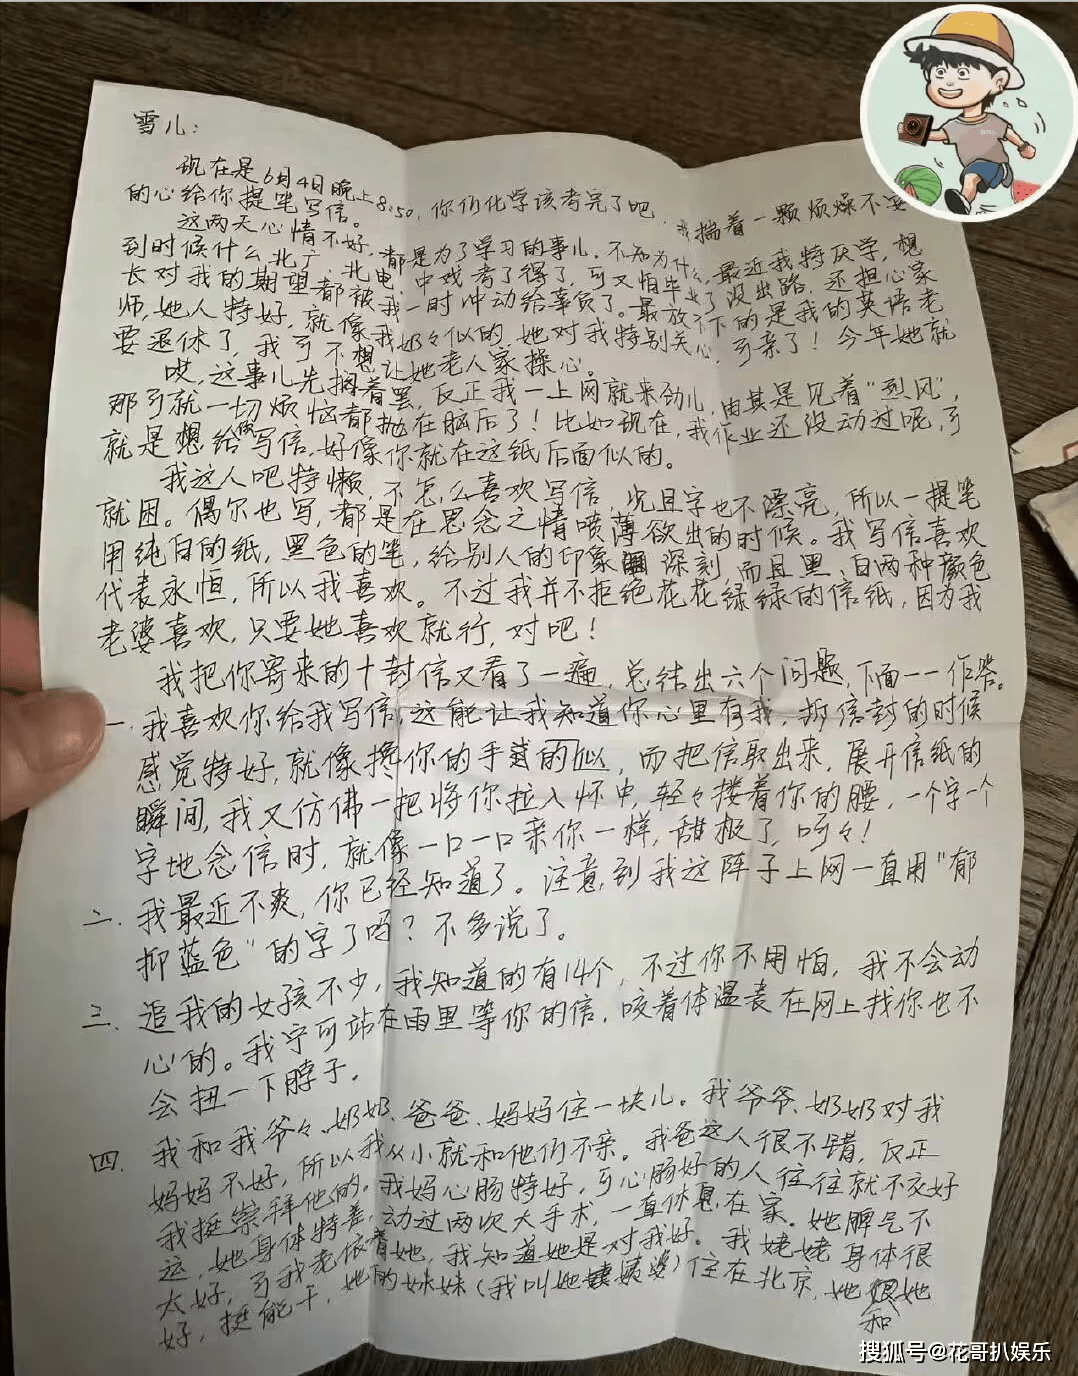 雪儿：
现在是6月4日晚上8:50，你们化学该考完了吧，我揣着一颗烦燥不安
的心给你提笔写信。
这两天心情不好，都是为了学习的事儿。不知为什么，最近我特厌学，想
到时候什么北广、北电、中戏考了得了，可又怕毕业了没出路，还担心家
长对我的期望都被我一时冲动给辜负了。最放不下的是我的英语老
师，她人特好，就像我奶々似的，她对我特别关心，可亲了！今年她就
要退休了，我可不想让她老人家操心。
哎，这事儿先搁着罢，反正我一上网就来劲儿，由其是见着“烈风”，
那可就一切烦恼都抛在脑后了！比如现在，我作业还没动过呢，可
就是想给你写信，好像你就在这纸后面似的。
我这人吧特懒，不怎么喜欢写信，况且字也不漂亮，所以一提笔
就困。偶尔也写，都是在思念之情喷薄欲出的时候。我写信喜欢
用纯白的纸，黑色的笔，给别人的印象深刻，而且黑、白两种颜色
代表永恒，所以我喜欢。不过我并不拒绝花花绿绿的信纸，因为我
老婆喜欢，只要她喜欢就行，对吧！
我把你寄来的十封信又看了一遍，总结出六个问题，下面一一作答。
一、我喜欢你给我写信，这能让我知道你心里有我，拆信封的时候
感觉特好，就像搀你的手似的，而把信取出来，展开信纸的
瞬间，我又仿佛一把将你拉入怀中，轻々搂着你的腰，一个字一个
字地念信时，就像一口一口亲你一样，甜极了，呵々！
二、我最近不爽，你已经知道了。注意到我这阵子上网一直用“郁
抑蓝色”的字了吗？不多说了。
三、追我的女孩不少，我知道的有14个，不过你不用怕，我不会动
心的。我宁可站在雨里等你的信，咬着体温表在网上找你也不
会扭一下脖子。
四、我和我爷々、奶奶、爸爸、妈妈住一块儿。我爷爷、奶奶对我
妈妈不好，所以我从小就和他们不亲。我爸这人很不错，反正
我挺崇拜他的。我妈心肠特好，可心肠好的人往往就不交好
运，她身体特差，动过两次大手术，一直休息在家。她脾气不
太好，可我老依着她，我知道她是对我好。我姥姥身体很
好，挺能干，她的妹妹（我叫她姨婆）住在北京，她和她
搜狐号@花哥扒娱乐